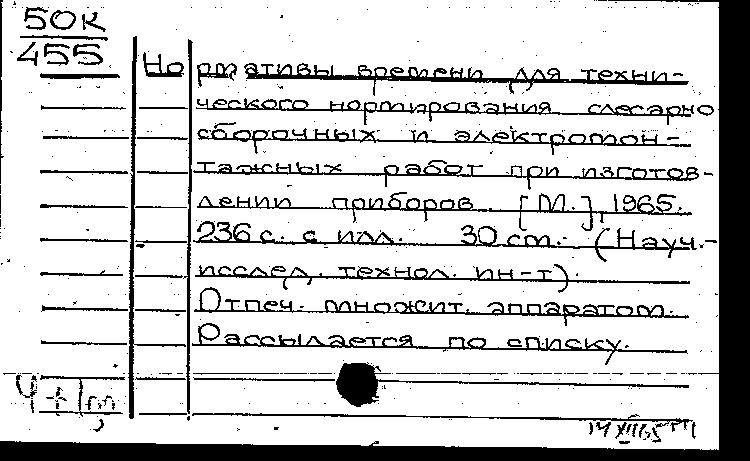 50К
455
Нормативы времени для техни-
ческого нормирования слесарно
сборочных и электромон-
тажных работ при изготов-
лении приборов. [М.], 1965.
236 с. с илл. 30 см. (Науч.-
исслед. технол. ин-т).
Отпеч. множит. аппаратом.
Рассылается по списку.
Ч+1
14 XII 65